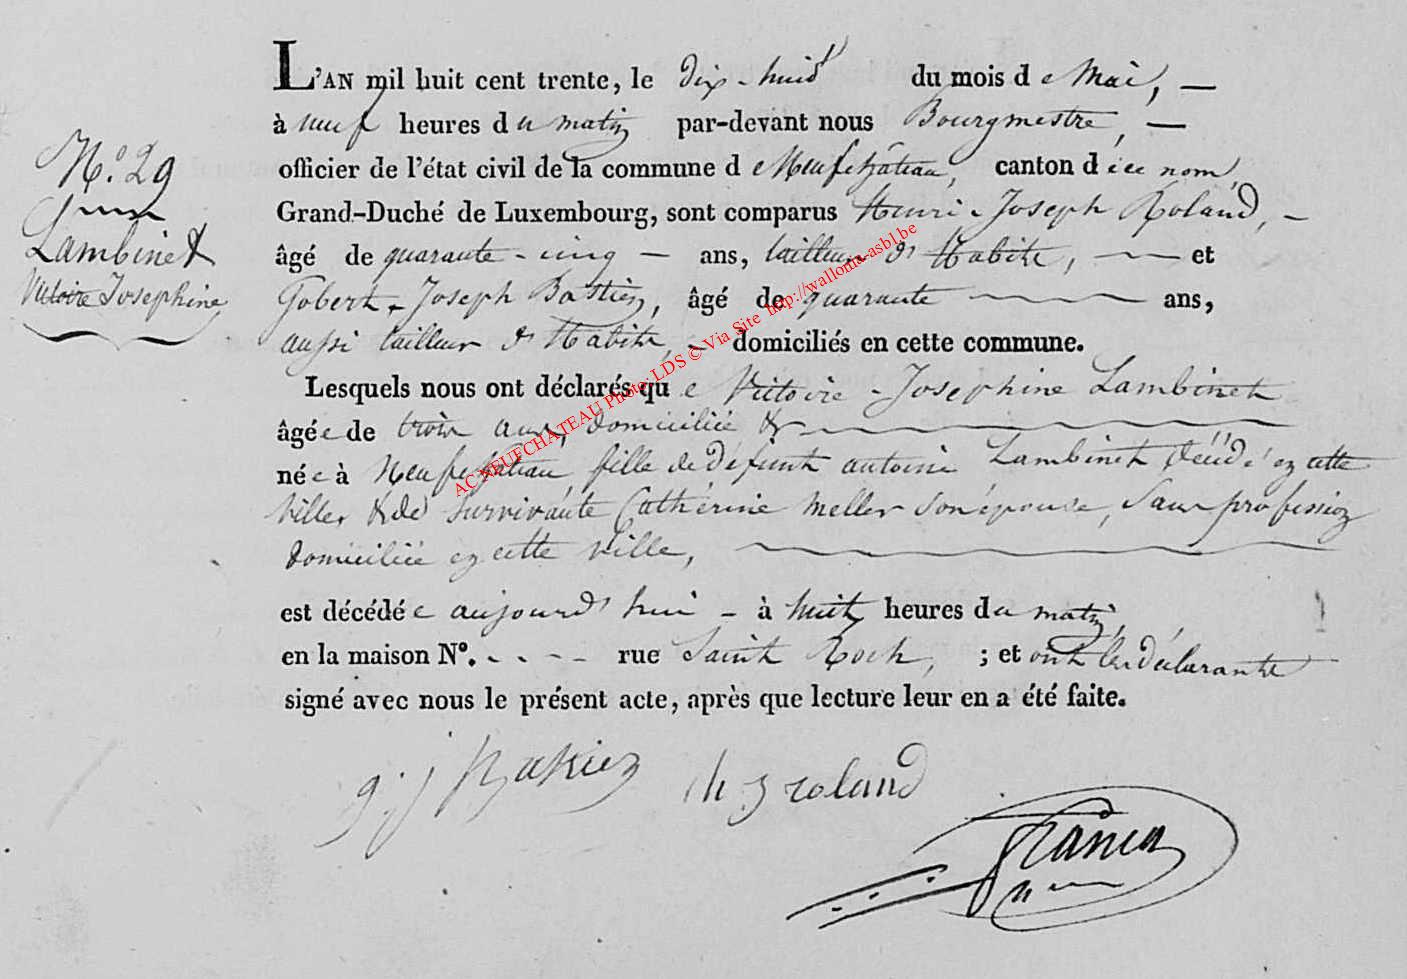 L'AN mil huit cent trente, le dix-huit du mois de Mai,
à neuf heures du matin par-devant nous Bourgmestre,
officier de l'état civil de la commune de Neufchâteau, canton d ice nom,
Grand-Duché de Luxembourg, sont comparus Henri-Joseph Roland,
âgé de quarante-cinq ans, tailleur d'Habits, et
Gobert-Joseph Bastien, âgé de quarante ans,
aussi tailleur d'Habits, domiciliés en cette commune.
N.° 29
Lambinet
Victoire Josephine
Lesquels nous ont déclarés que Victoire-Josephine Lambinet
âgée de trois ans, domiciliée &
née à Neufchâteau fille de défunt antoine Lambinet décédé en cette
ville, & de survivante Cathérine meller son épouse, sans profession
domiciliée en cette ville,
est décédée aujourd'hui - à huit heures du matin,
en la maison N°. - - - - rue Saint Roch, ; et ont les déclarants
signé avec nous le présent acte, après que lecture leur en a été faite.
g. j Bastien h j roland
AC NEUFCHATEAU Photo: LDS © Via Site http://wallonia-asbl.be